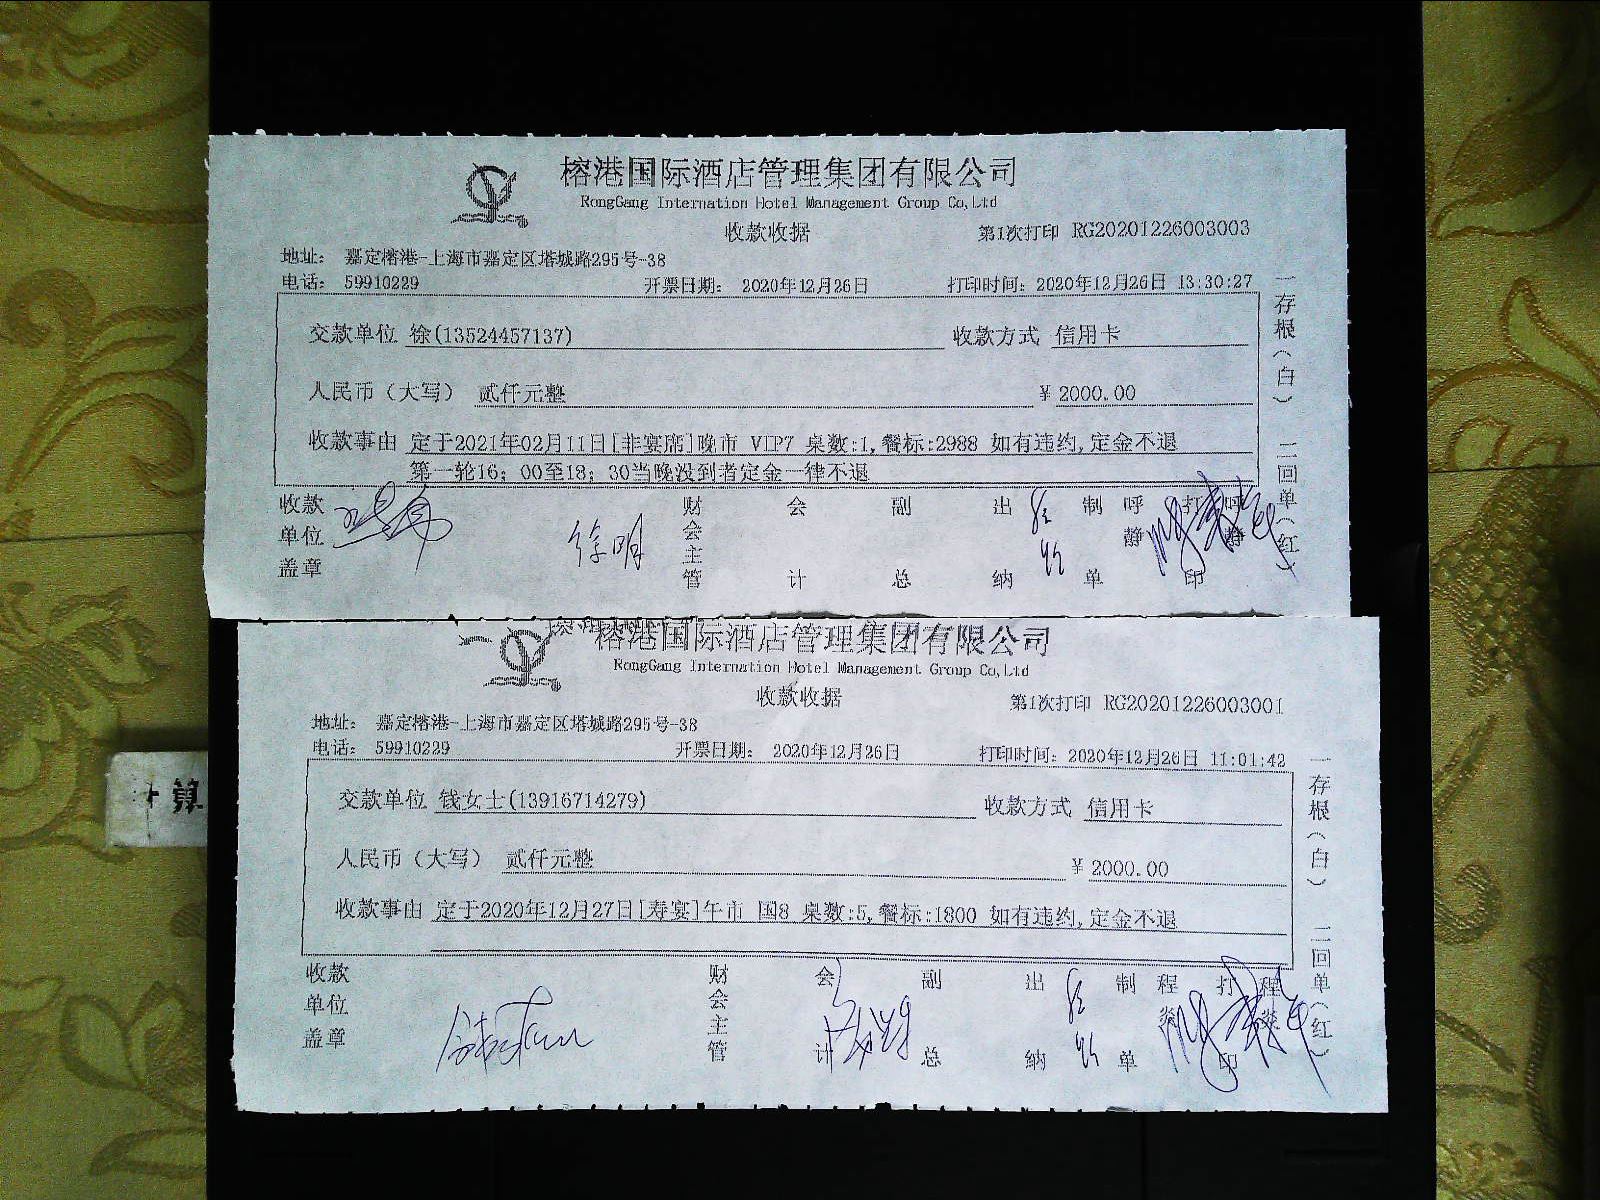 榕港国际酒店管理集团有限公司
RongGang Internation Hotel Management Group Co,Ltd
收款收据
第1次打印 RG20201226003003
地址： 嘉定榕港-上海市嘉定区塔城路295号-38
电话： 59910229 开票日期： 2020年12月26日 打印时间：2020年12月26日 13:30:27
交款单位 徐(13524457137) 收款方式 信用卡
人民币（大写） 贰仟元整 ￥2000.00
收款事由 定于2021年02月11日[非宴席]晚市 VIP7 桌数:1,餐标:2988 如有违约,定金不退
第一轮16；00至18；30当晚没到者定金一律不退
收款单位盖章 徐明 财会主管 会计 副总 出纳 制单 呼静 打印 呼静
一存根(白) 二回单(红)
榕港国际酒店管理集团有限公司
RongGang Internation Hotel Management Group Co,Ltd
收款收据
第1次打印 RG20201226003001
地址： 嘉定榕港-上海市嘉定区塔城路295号-38
电话： 59910229 开票日期： 2020年12月26日 打印时间：2020年12月26日 11:01:42
交款单位 钱女士(13916714279) 收款方式 信用卡
人民币（大写） 贰仟元整 ￥2000.00
收款事由 定于2020年12月27日[寿宴]午市 国8 桌数:5,餐标:1800 如有违约,定金不退
收款单位盖章 财会主管 会计 副总 出纳 制单 程燚 打印 程燚
一存根(白) 二回单(红)
算